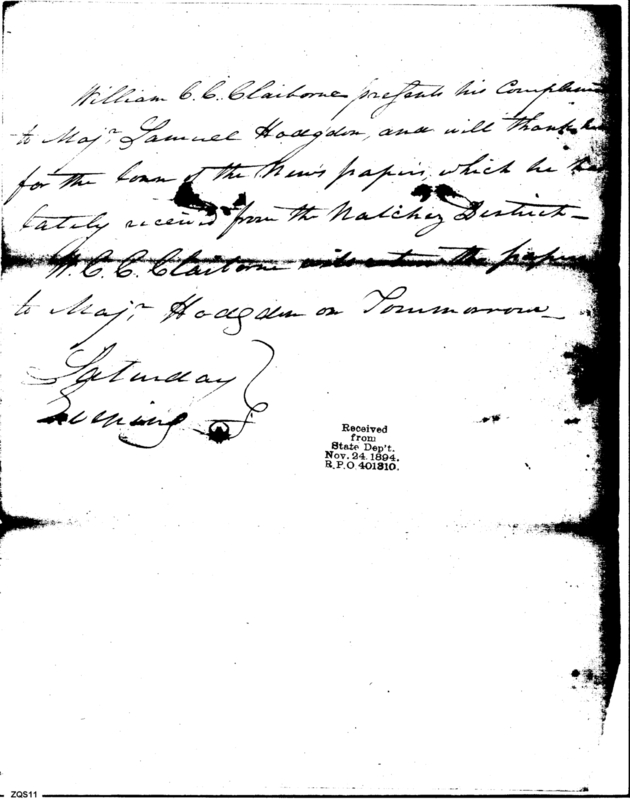 William C. C. Claiborne presents his Complim
to Majr. Samuel Hodgdon, and will thank
for the loan of the News papers, which he has
lately received from the Natchez District—
W. C. C. Claiborne will return the papers
to Majr. Hodgdon on Tommorrow—
Saturday
Evening
Received
from
State Dep't.
Nov. 24. 1894.
R.P.O. 401310.
ZQS11